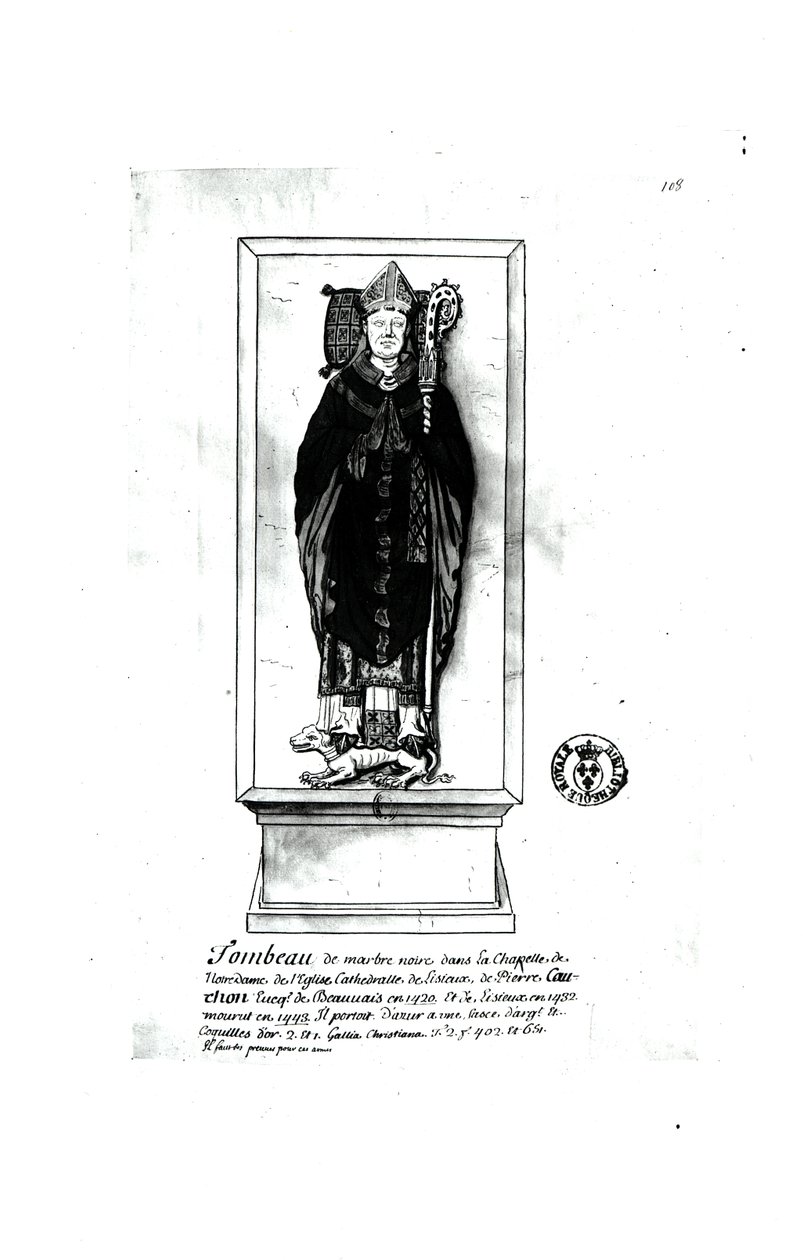 108
BIBLIOTHEQUE ROYALE
Tombeau de marbre noire dans la Chapelle, de
Notre Dame, de l'Eglise, Cathedralle, de Lisieux, de Pierre, Cau-
chon Eueq.e de Beauuais en 1420. Et de, Lisieux, en 1432.
mourut en, 1443. Il portoit. D'azur a vne, fasce, d'arg.t Et..
Coquilles d'or. 2. Et 1. Gallia Christiana. T.2. f.o 402. Et 651.
pour ces armes